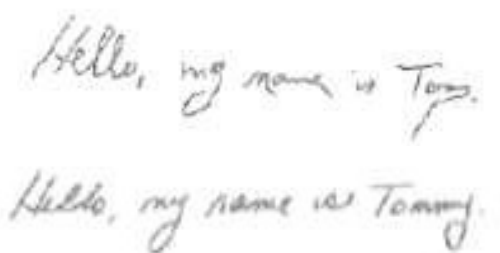 Hello, my name is Tom.
Hello, my name is Tommy.